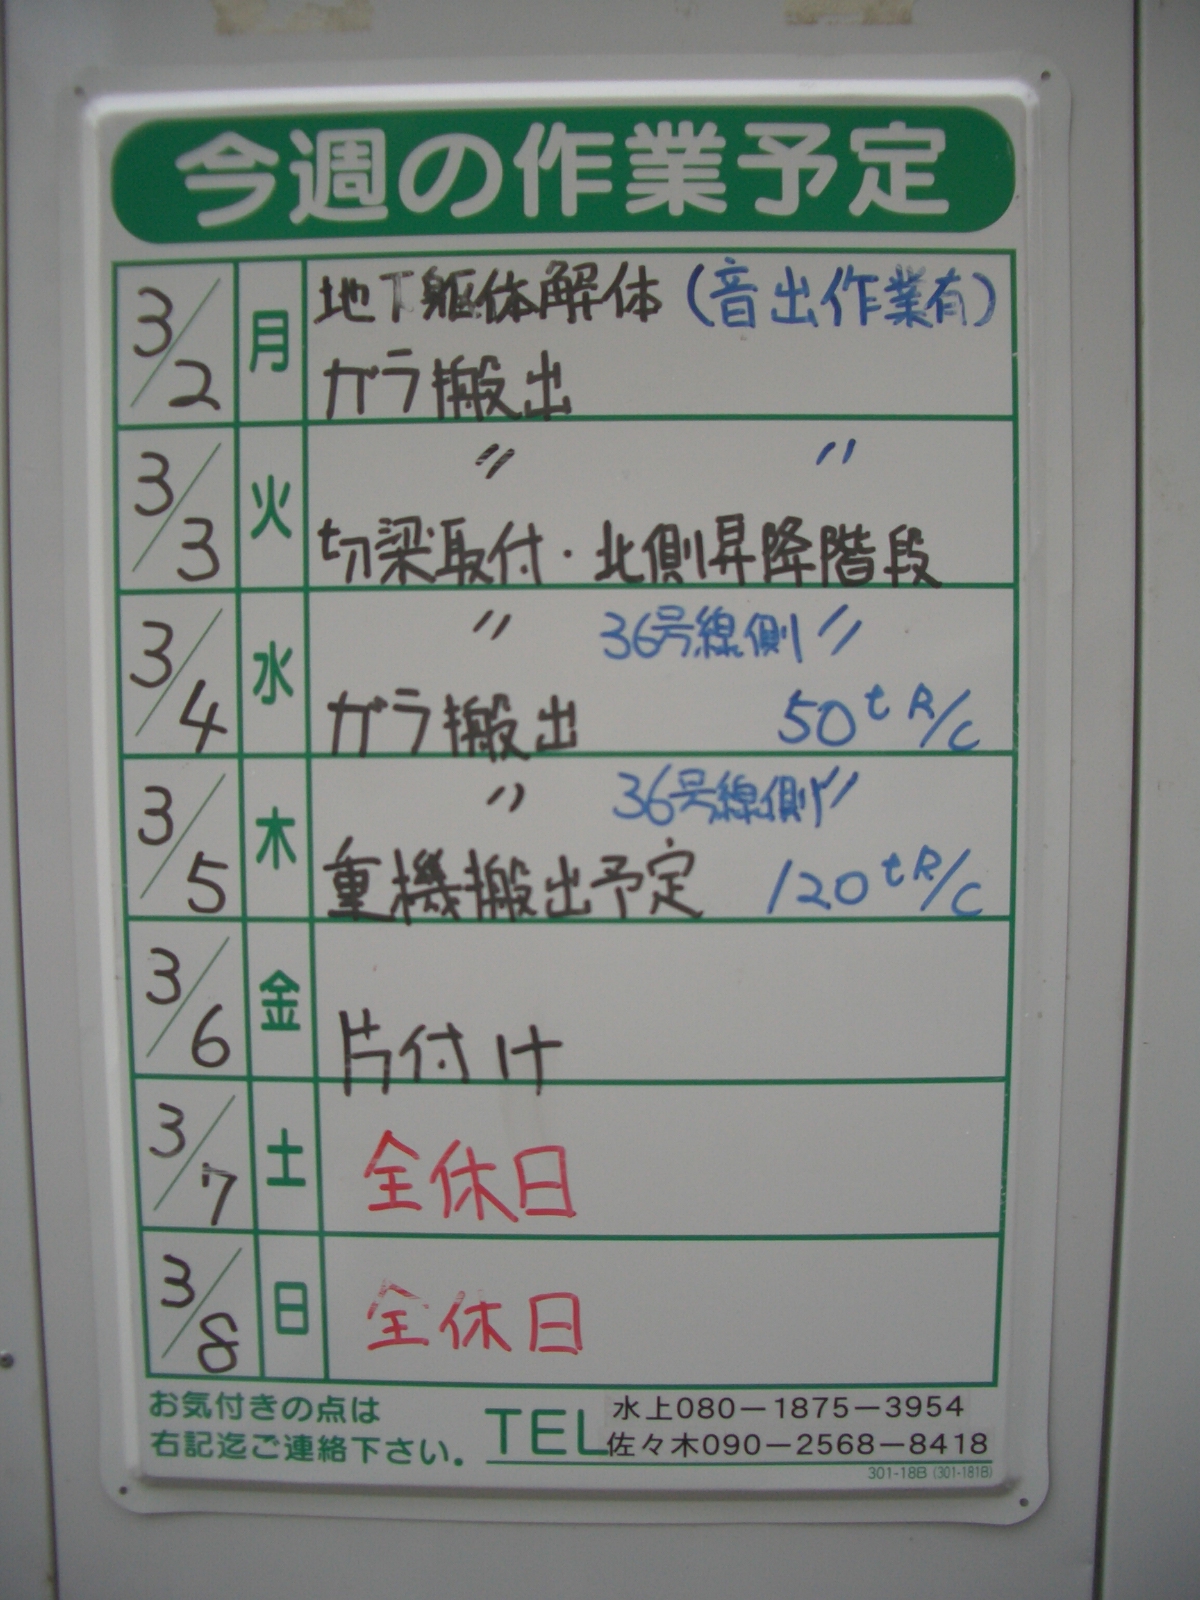 今週の作業予定
3/2 月 地下躯体解体 (音出作業有)
ガラ搬出
3/3 火 〃 〃
切梁取付・北側昇降階段
3/4 水 〃 36号線側 〃
ガラ搬出 50t R/C
3/5 木 〃 36号線側 〃
重機搬出予定 120t R/C
3/6 金 片付け
3/7 土 全休日
3/8 日 全休日
お気付きの点は
右記迄ご連絡下さい。
TEL 水上080-1875-3954
佐々木090-2568-8418
301-18B (301-181B)